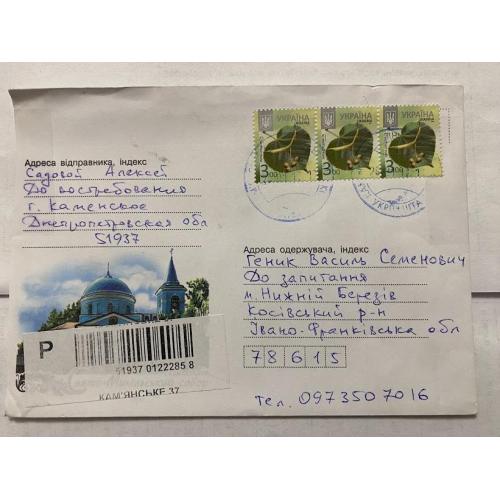 УКРАЇНА УКРАЇНА УКРАЇНА
3.00 3.00 3.00
УКРПОШТА
Адреса відправника, індекс
Садовой Алексей
До востребования
г. Каменское
Днепропетровская обл
51937
Адреса одержувача, індекс
Геник Василь Семенович
До запитання
м. Нижній Березів
Косівський р-н
Івано-Франківська обл
78615
Тел. 0973507016
P
51937 0122285 8
КАМ'ЯНСЬКЕ 37